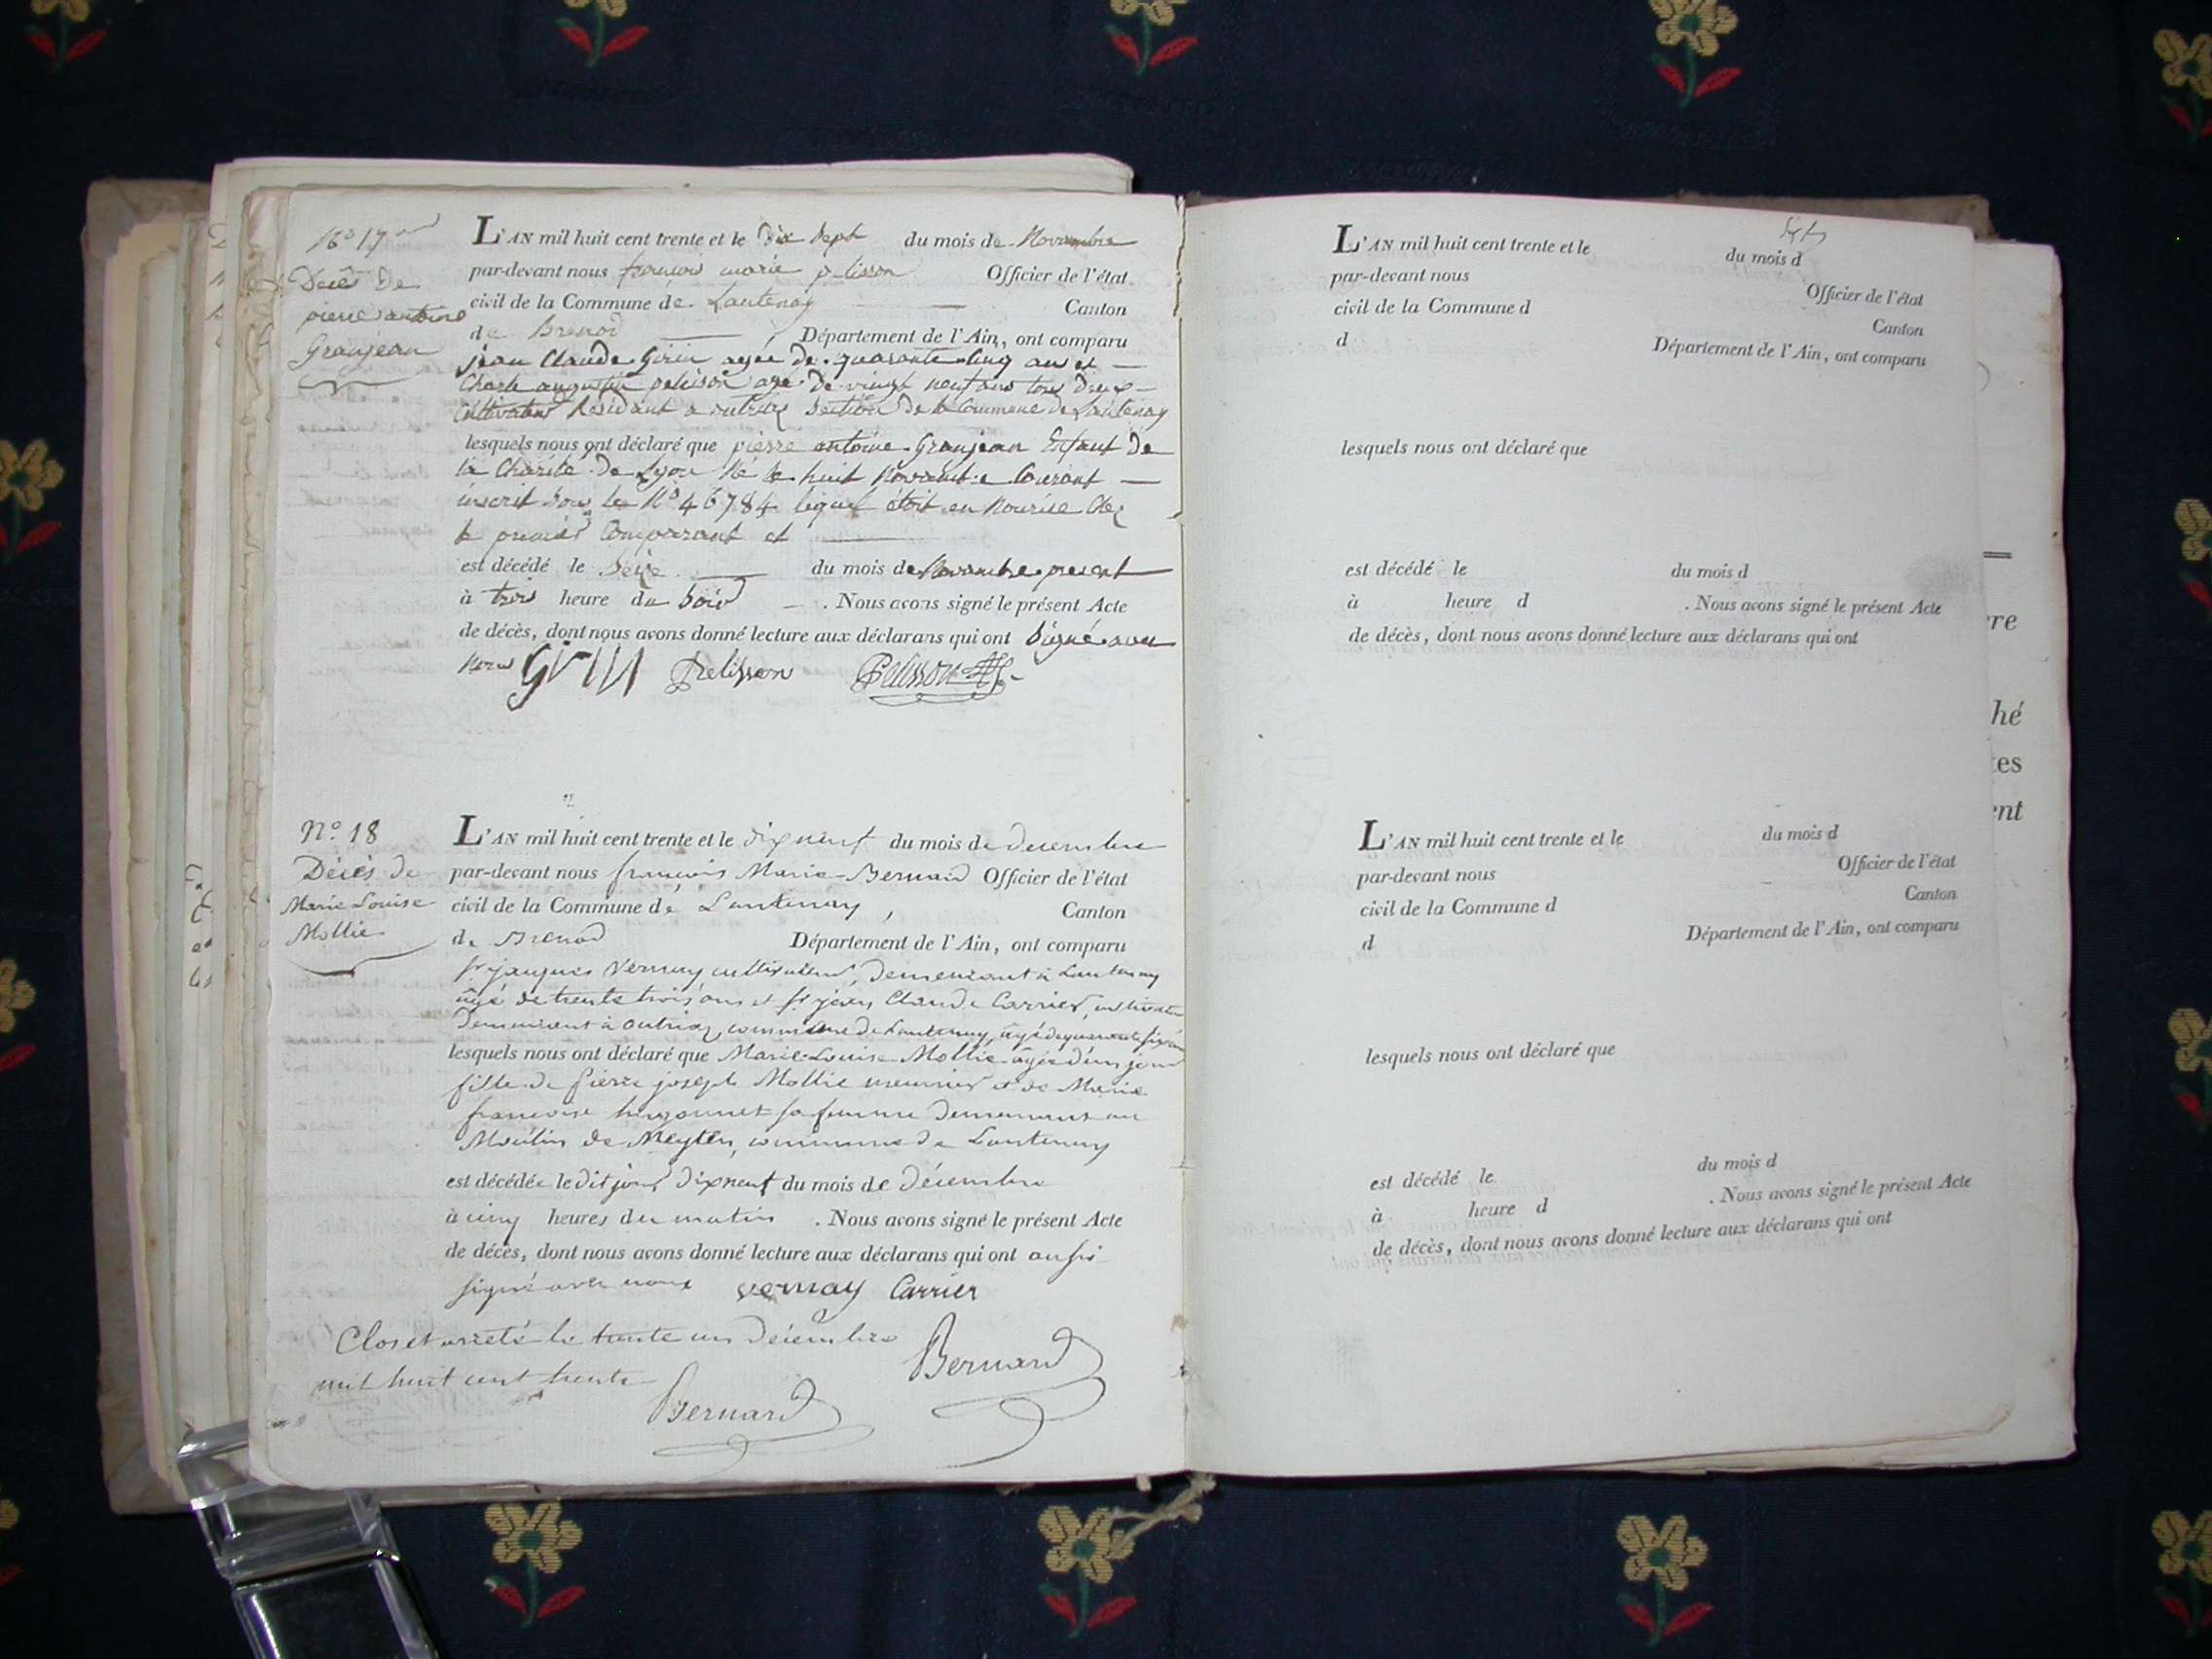 No 17
Décès de
pierre antoine
Granjean
L'AN mil huit cent trente et le dix Sept du mois de Novembre
par-devant nous françois marie pelisson Officier de l'état
civil de la Commune de Lantenay Canton
de Brenod Département de l'Ain, ont comparu
jean Claude Girin agée de quarante cinq ans et
Charle augustin pelisson age de vingt neuf ans tous deux
Cultivateur Résidant a outriaz Section de la Commune de Lantenay
lesquels nous ont déclaré que pierre antoine Granjean Enfant de
la Charité de Lyon Né le huit Novembre Courant
inscrit sous le No 46784 lequel étoit en Nourise Chez
le premier Comparant et
est décédé le Seize du mois de Novembre present
à trois heure du Soir . Nous avons signé le présent Acte
de décès, dont nous avons donné lecture aux déclarans qui ont Signé avec
Nous Girin Pelisson Pelisson
No. 18
Décès de
Marie Louise
Mollie
L'AN mil huit cent trente et le dix neuf du mois de decembre
par-devant nous françois Marie Bernard Officier de l'état
civil de la Commune de Lantenay, Canton
de Brenod Département de l'Ain, ont comparu
Sr jacques Vernay cultivateur, demeurant à Lantenay
âgé de trente trois ans et Sr jean Claude Carrier, cultivateur
demeurant à outriaz, commune de Lantenay, âgé de quarante six ans
lesquels nous ont déclaré que Marie Louise Mollie âgée d'un jour
fille de pierre joseph Mollie meunier et de Marie
françoise hugonnet sa femme demeurant au
Moulin de Meylen, commune de Lantenay
est décédée le dit jour dix neuf du mois de décembre
à cinq heures du matin . Nous avons signé le présent Acte
de décès, dont nous avons donné lecture aux déclarans qui ont aussi
signé avec nous vernay Carrier
Clos et arreté le trente un décembre
mil huit cent trente
Bernard
Bernard
L'AN mil huit cent trente et le du mois d
par-devant nous Officier de l'état
civil de la Commune d Canton
d Département de l'Ain, ont comparu
lesquels nous ont déclaré que
est décédé le du mois d
à heure d . Nous avons signé le présent Acte
de décès, dont nous avons donné lecture aux déclarans qui ont
L'AN mil huit cent trente et le du mois d
par-devant nous Officier de l'état
civil de la Commune d Canton
d Département de l'Ain, ont comparu
lesquels nous ont déclaré que
est décédé le du mois d
à heure d . Nous avons signé le présent Acte
de décès, dont nous avons donné lecture aux déclarans qui ont
re
hé
tes
ent